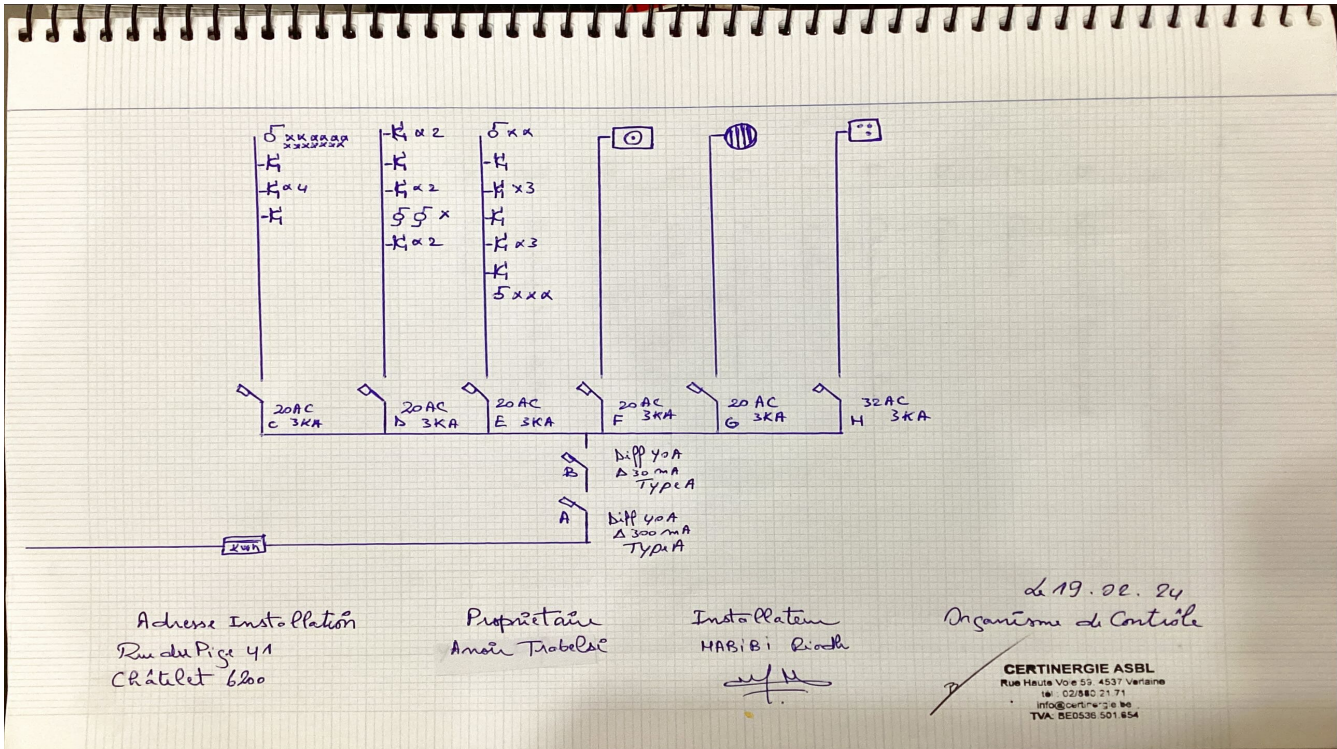 x x α α α α
x x x x x x x
α 2
x x
α 4
α 2
x 3
x
α 2
α 3
x x x
20 AC
C 3KA
20 AC
D 3KA
20 AC
E 3KA
20 AC
F 3KA
20 AC
G 3KA
32 AC
H 3KA
B
Diff 40A
Δ 30 mA
Type A
A
Diff 40A
Δ 300 mA
Type A
kwh
Le 19.02.24
Adresse Installation
Rue du Pige 41
Châtelet 6200
Propriétaire
Anoir Trabelsi
Installateur
HABIBI Riadh
Organisme de Contrôle
CERTINERGIE ASBL
Rue Haute Voie 59, 4537 Verlaine
tél : 02/880 21 71
info@certinergie.be
TVA: BE0536.501.654